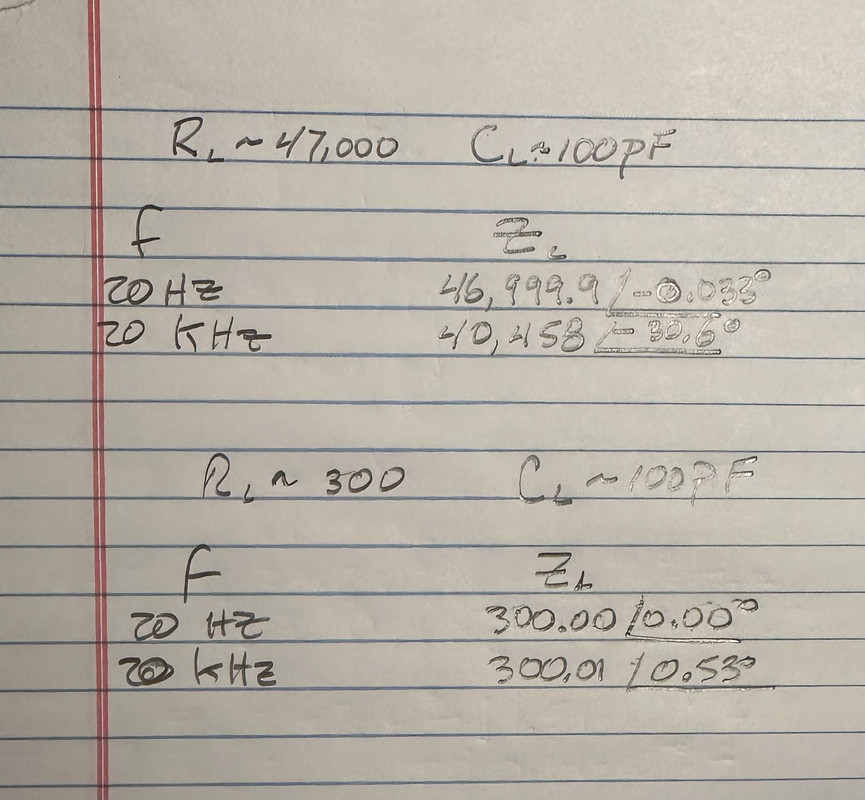 R_L ~ 47,000 C_L ~ 100pF
f Z_L
20 Hz 46,999.9 /-0.033°
20 KHz 40,458 /-30.6°
R_L ~ 300 C_L ~ 100PF
f Z_L
20 Hz 300.00 /0.00°
20 kHz 300.01 /0.53°